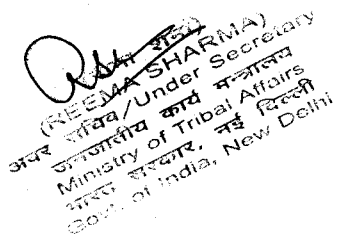 शर्मा
(REEMA SHARMA)
अवर सचिव/Under Secretary
जनजातीय कार्य मन्त्रालय
Ministry of Tribal Affairs
भारत सरकार, नई दिल्ली
Govt. of India, New Delhi